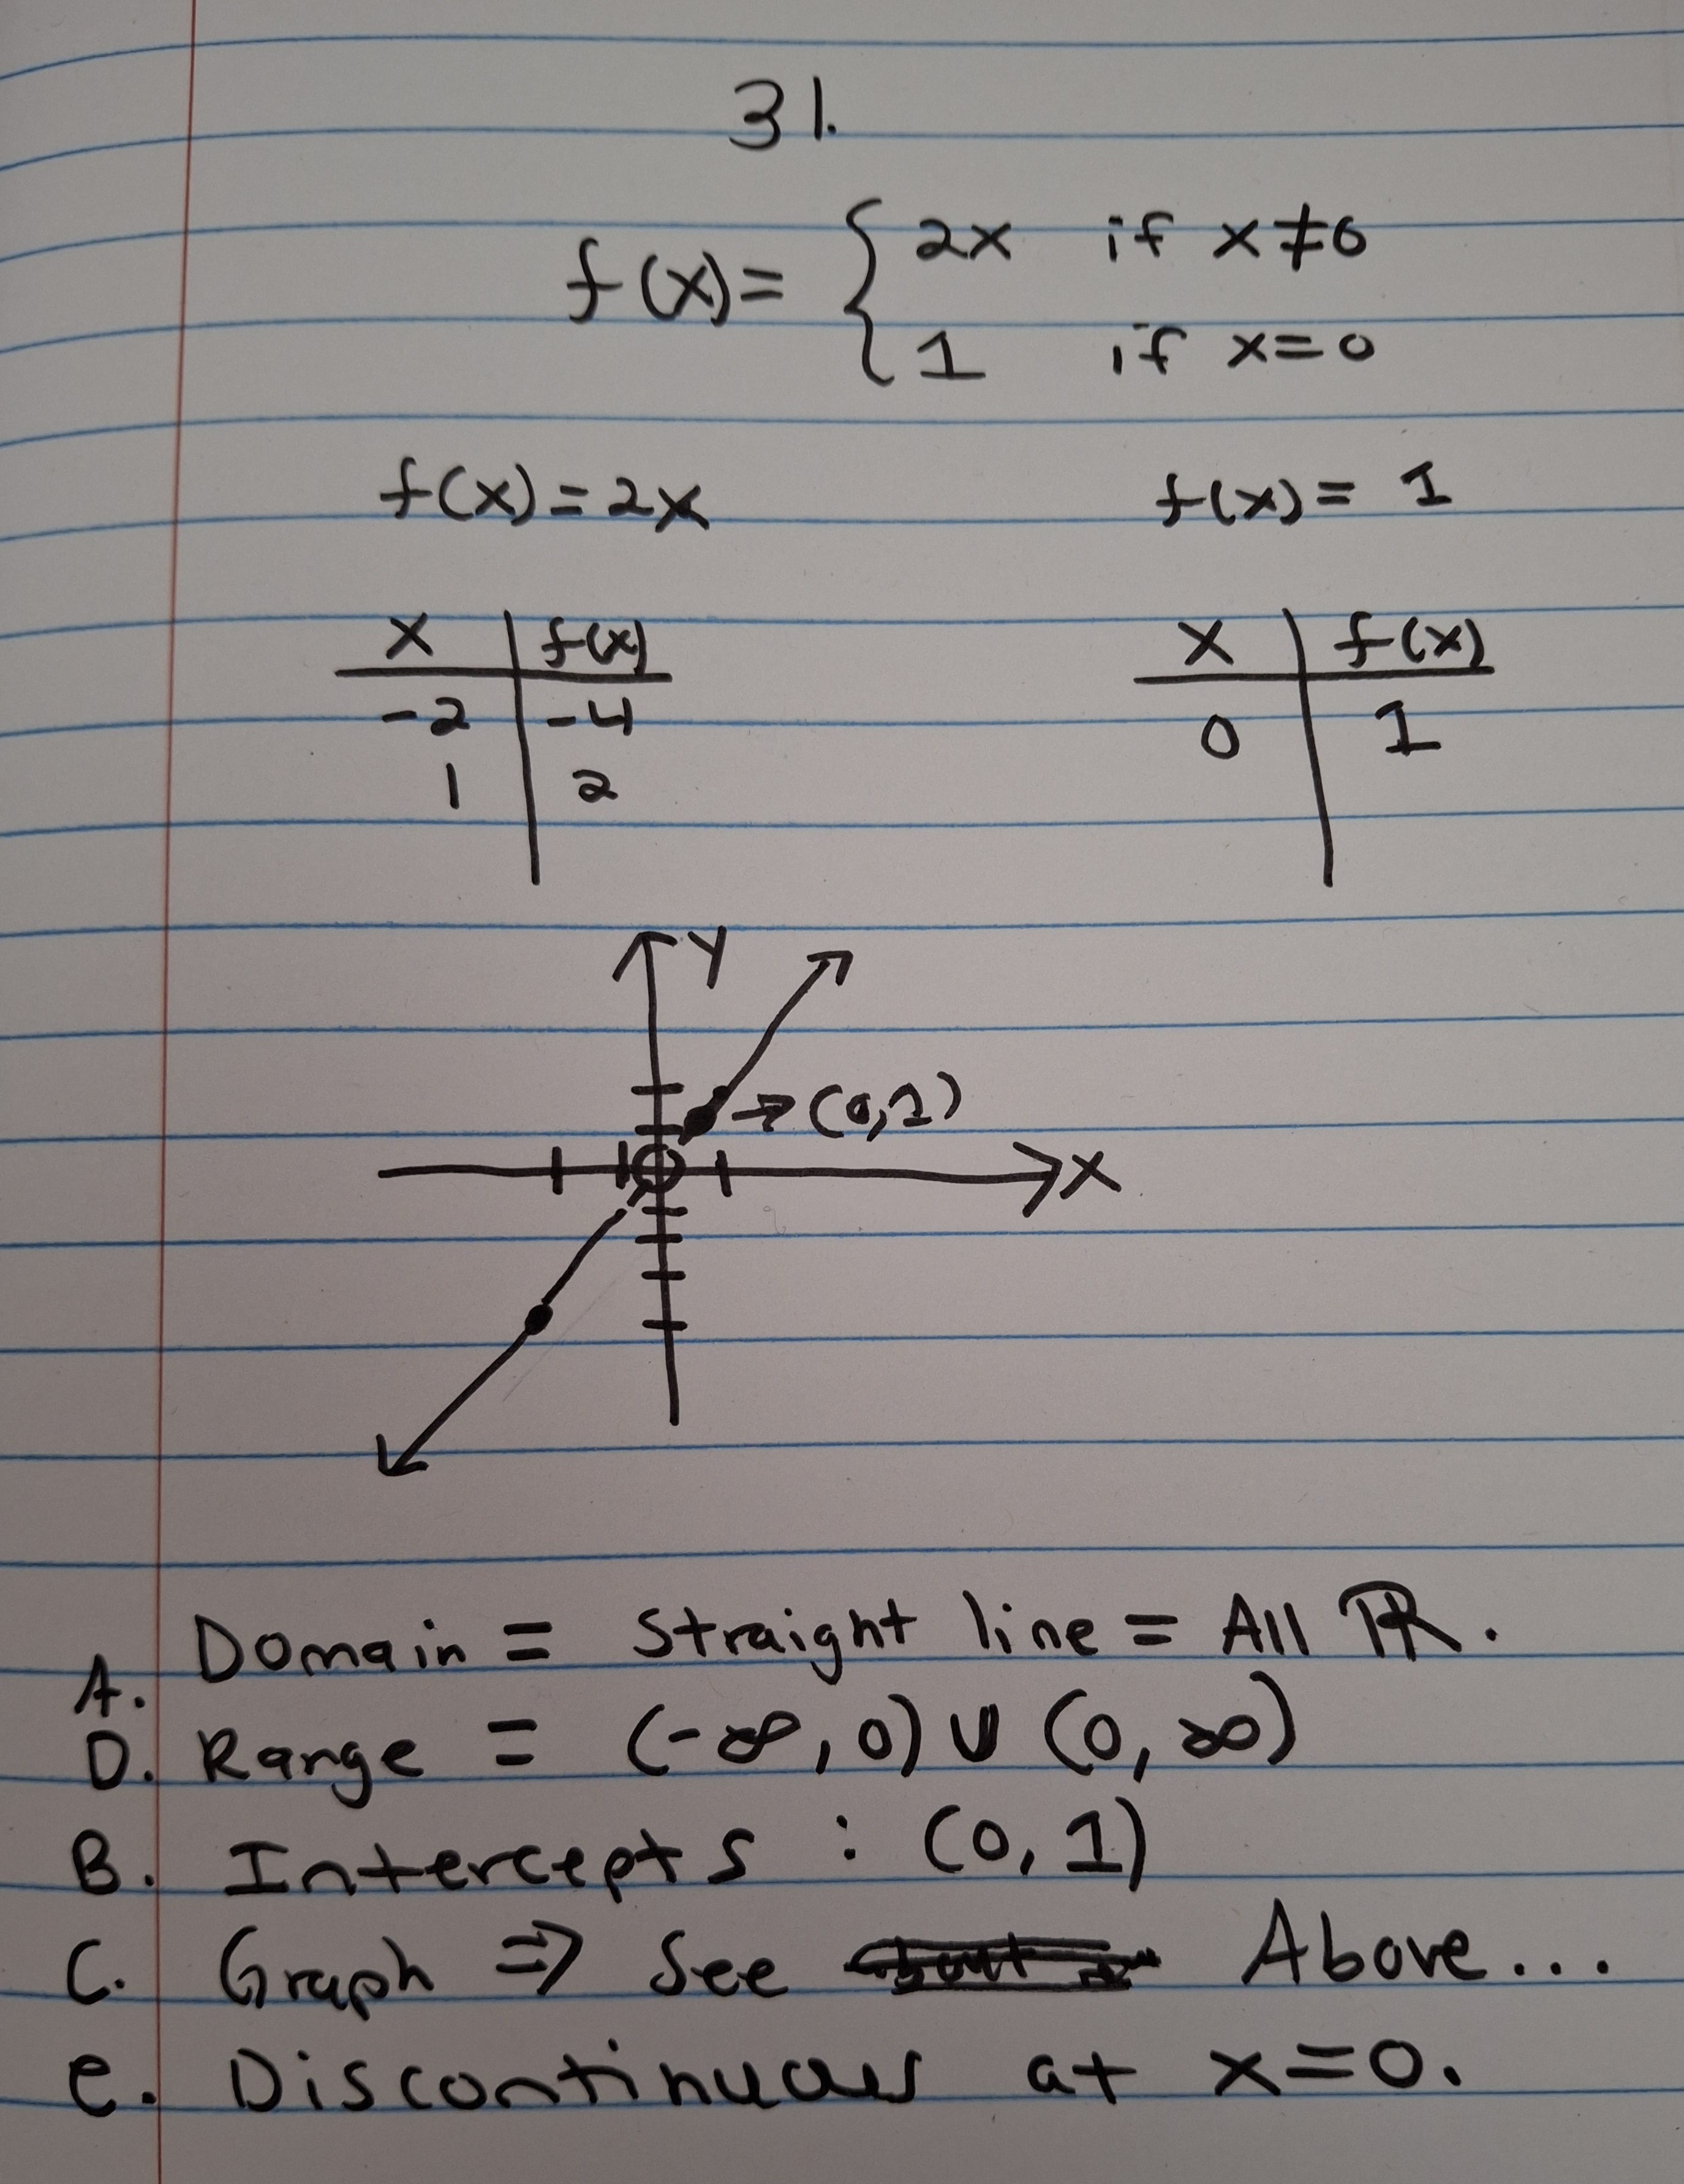 31.
f(x)= { 2x if x≠0
1 if x=0
f(x)=2x f(x)= 1
x f(x) x f(x)
-2 -4 0 1
1 2
y
→(0,1)
x
A. Domain = Straight line = All ℝ.
D. Range = (-∞, 0) ∪ (0, ∞)
B. Intercepts : (0, 1)
C. Graph ⇒ See Above...
e. Discontinuous at x=0.